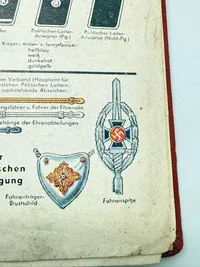 Politischer-Leiter-
Anwärter (Pg.)
Politischer-Leiter-
Anwärter (Nicht-Pg.)
Kragen, Mützen u. Spiegelpaspel:
hellblau
weiß
dunkelrot
goldgelb
er Verband (Hauptamt für
estehen Politischen Leitern
nachstehende Abzeichen:
und Führer der Ehrenabt.
der Ehrenabteilungen
er
schen
gung
Fahnenträger-
Brustschild
Fahnenspitze